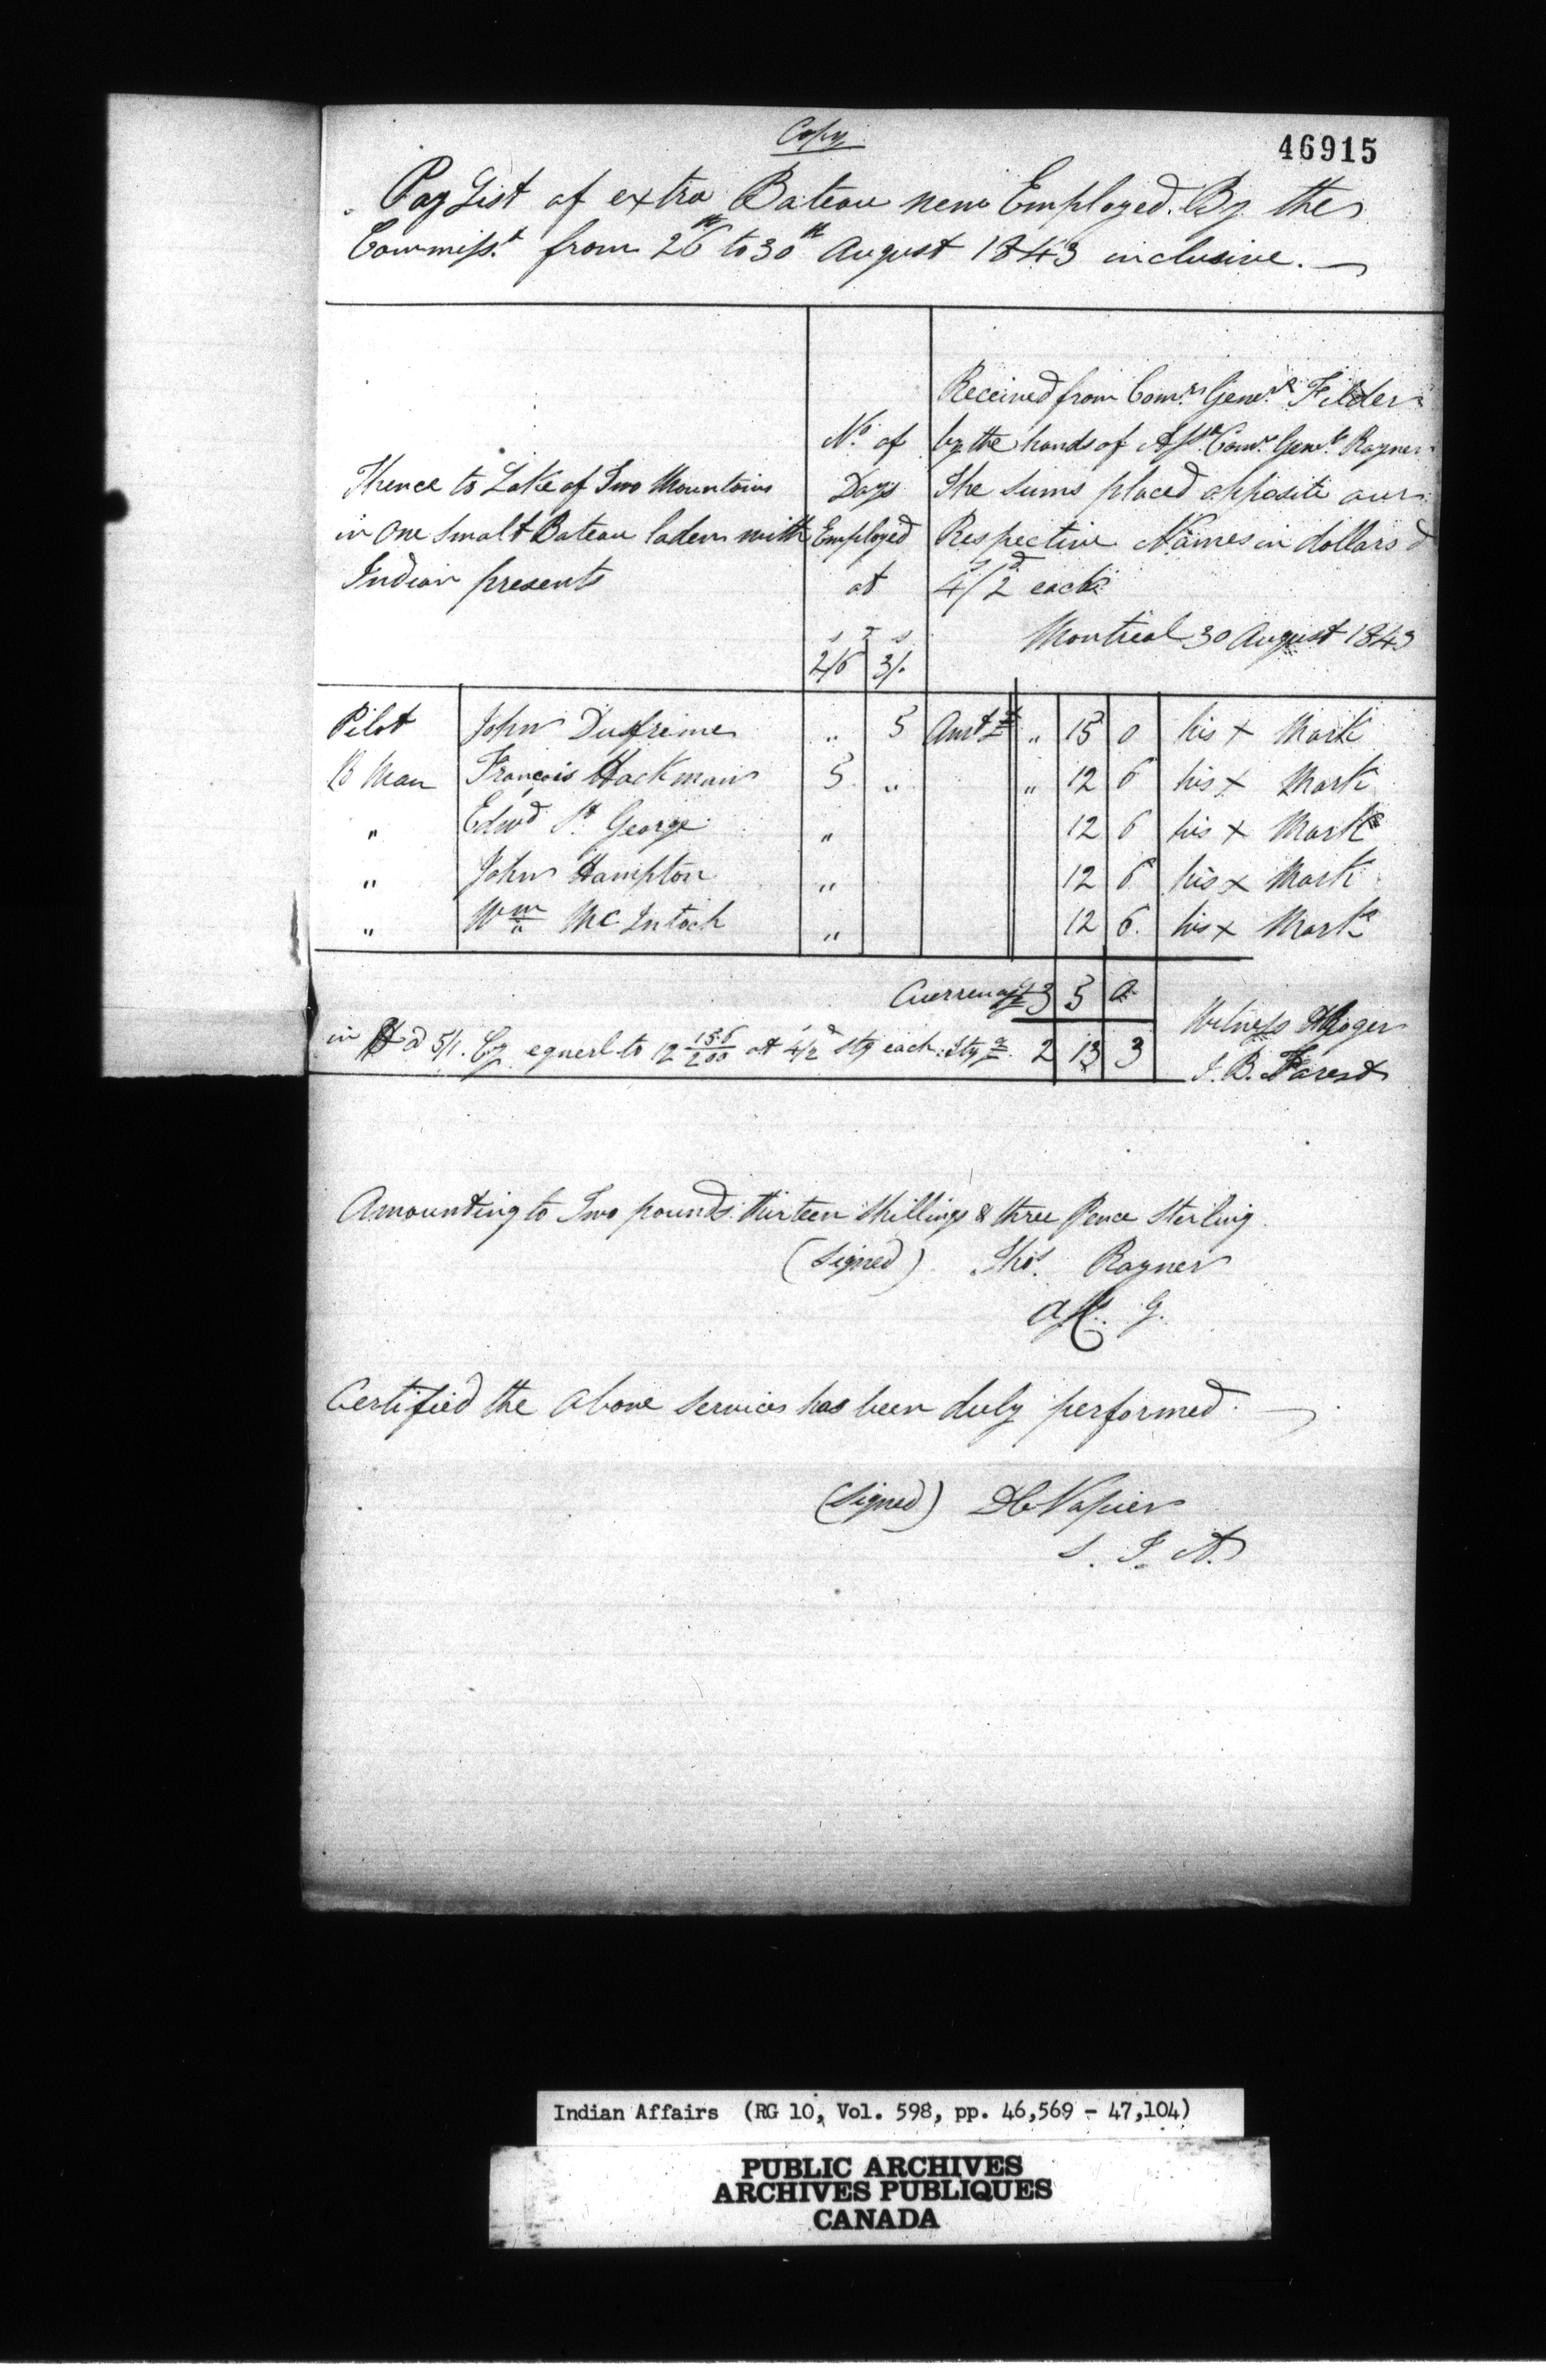 Copy
46915
Pay List of extra Bateau men Employed By the
Commisst. from 26th to 30th August 1843 inclusive. —
Thence to Lake of Two Mountains
in one small Bateau laden with
Indian presents
No. of
Days
Employed
at
s d s
2/6 3/.
Received from Comy. Genel. Filder
by the hands of Asst. Comy. Genl. Rayner
The sums placed opposite our
Respective Names in dollars @
4s/2d each
Montreal 30 August 1843
Pilot John Dufresne „ 5 Amt £ „ 15 0 his x Mark
B Man François Hackman 5 „ „ 12 6 his x Mark
„ Edwd St. George „ 12 6 his x Mark
„ John Hampton „ 12 6 his x Mark
„ Wm Mc Intosh „ 12 6. his x Mark
Currency £ 3 5 0
in $ @ 5/1. Cy equerl to 12 156/200 at 4/2d stg each. Stg £ 2 13 3
Witness
J. B. Forest
Amounting to Two pounds thirteen shillings & three Pence Sterling
(signed) Thos. Rayner
A. C. G.
Certified the above services has been duly performed. —
(signed) DC Napier
S. I. A.
Indian Affairs (RG 10, Vol. 598, pp. 46,569 - 47,104)
PUBLIC ARCHIVES
ARCHIVES PUBLIQUES
CANADA